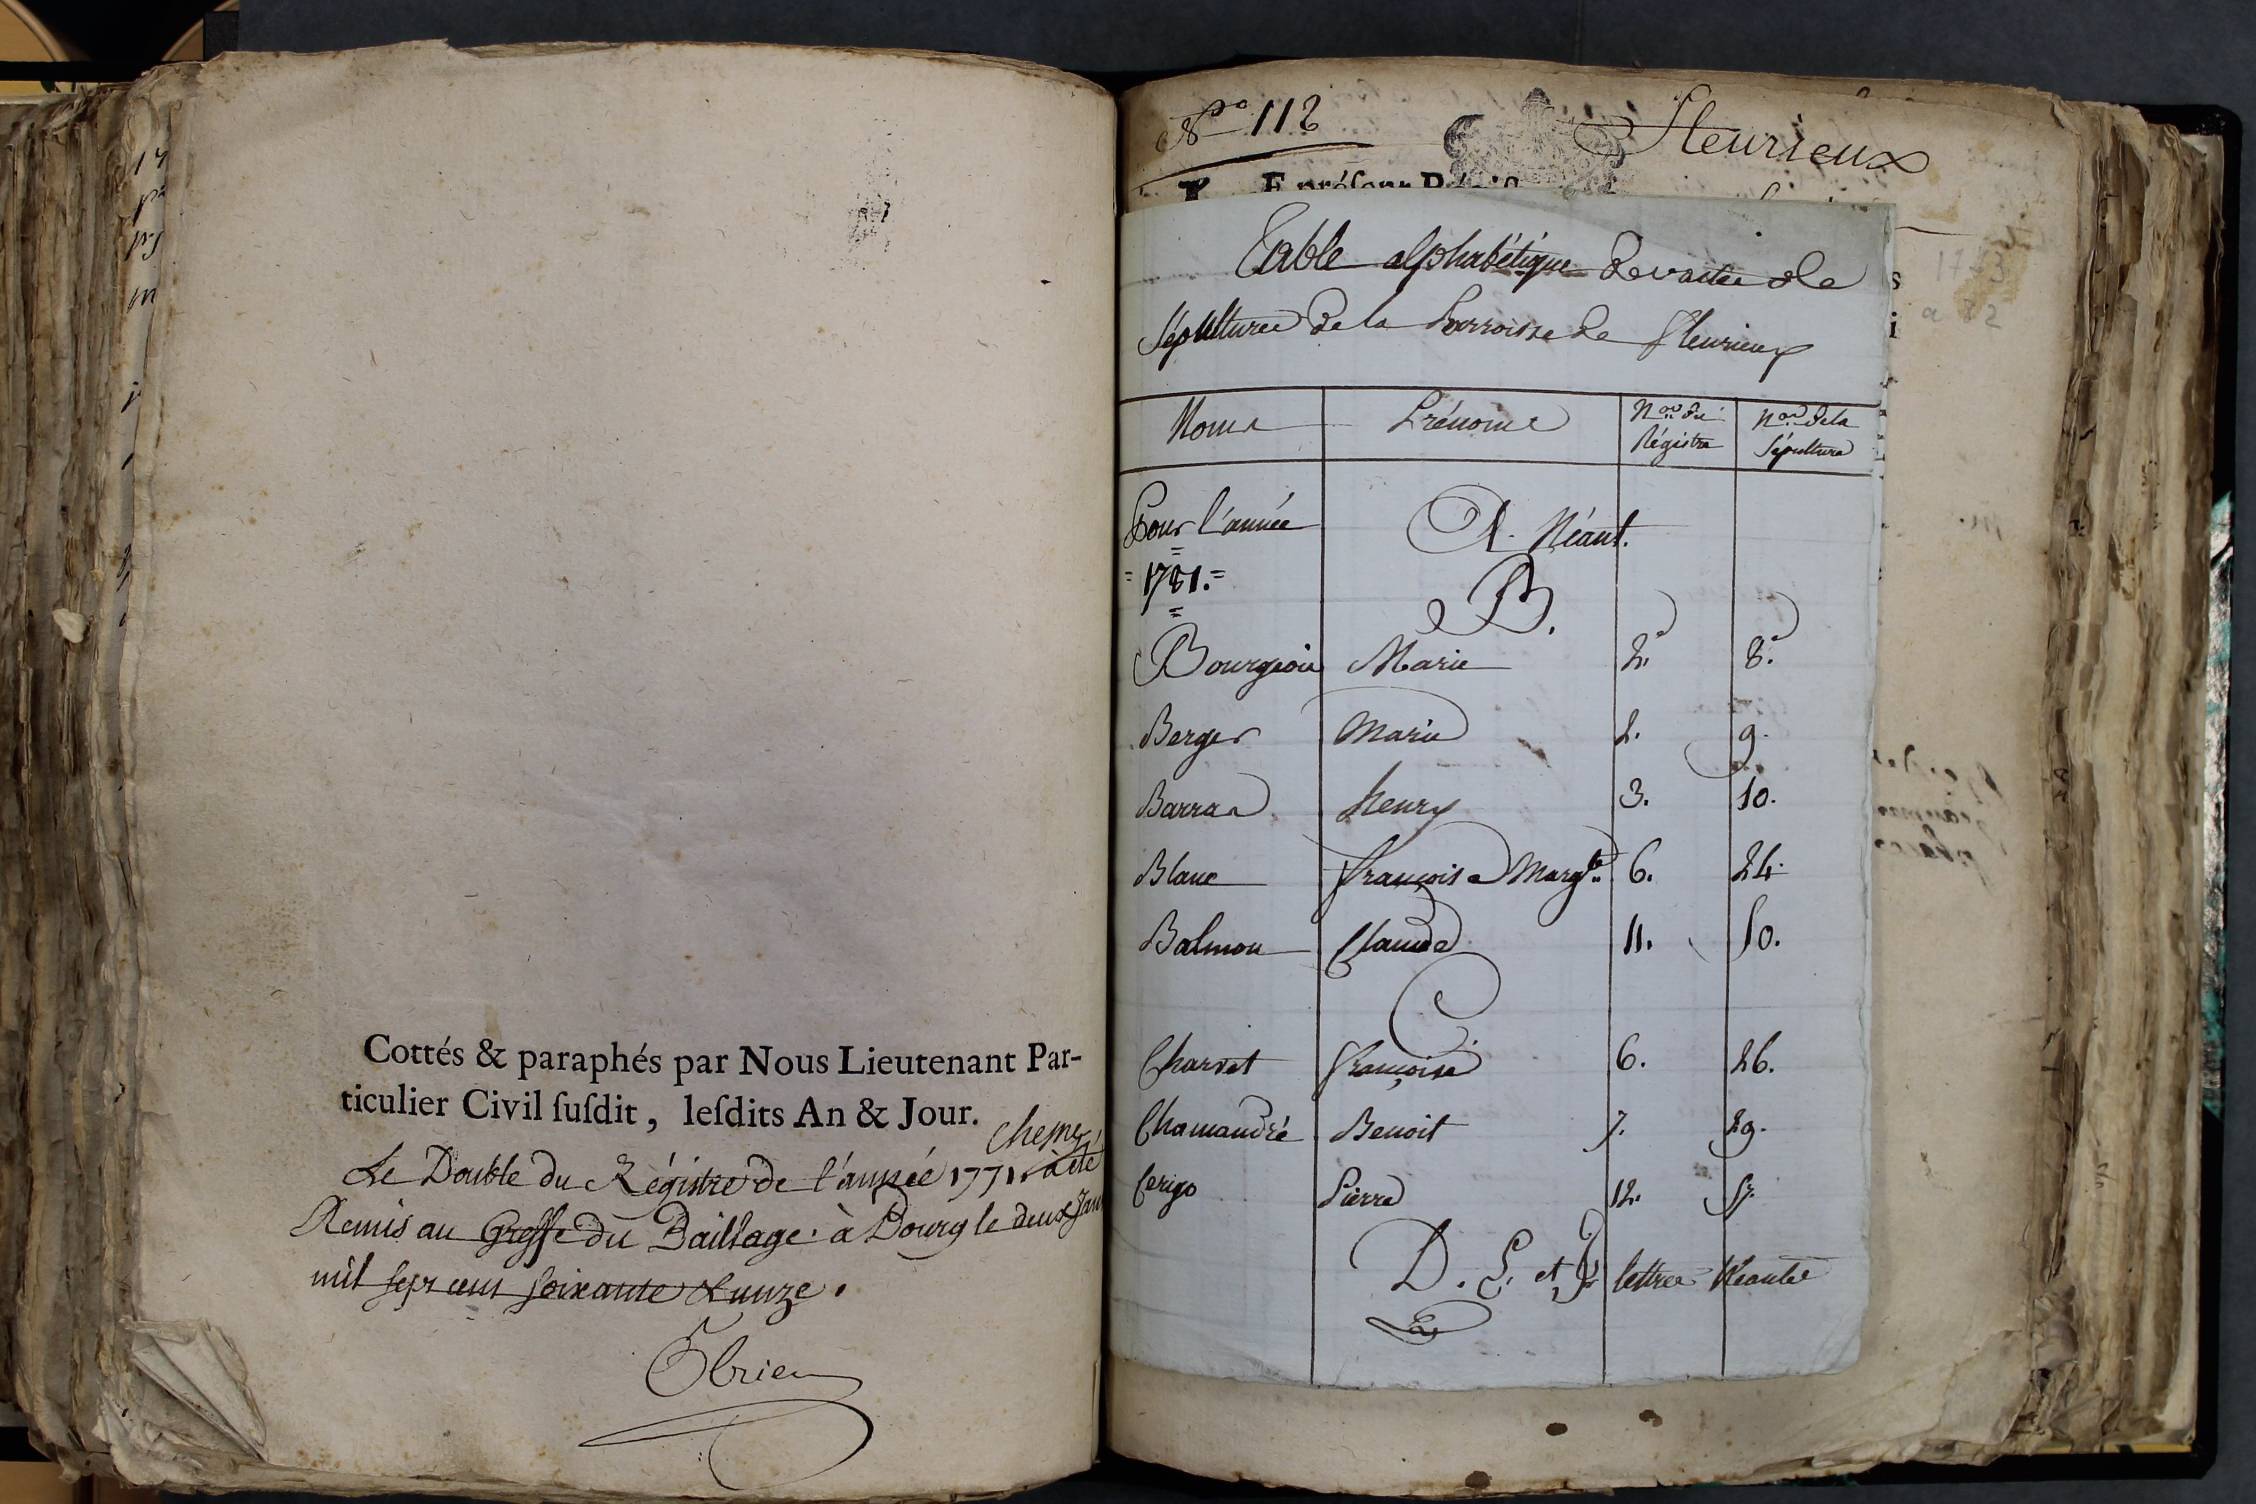 Cottés & paraphés par Nous Lieutenant Par-
ticulier Civil ſuſdit, leſdits An & Jour.
Le Double du Régistre de l'année 1771. à été
Remis au Greffe du Bailliage. à Bourg le deux Jan
mil sept cent soixante &
Obrien
N.o 112
Fleurieux
E préſent Régiſ
Table alphabétique des actes de
Sépultures de la Parroisse de fleurieux
Noms
Prénoms
N.os du Régistre
N.os de la Sépulture
Pour l'année
A. Néant.
= 1781. =
B.
Bourgeois Marie 2. 8.
Berger Marie 2. 9.
Barras henry 3. 10.
Blanc françoise Marg.te 6. 24.
Balmon Claude 11. 50.
C.
Charvet françoise 6. 26.
Chamandré Benoit 7. 29.
Cerigo Pierre 12. 57.
D. E. et F. lettres Néantes